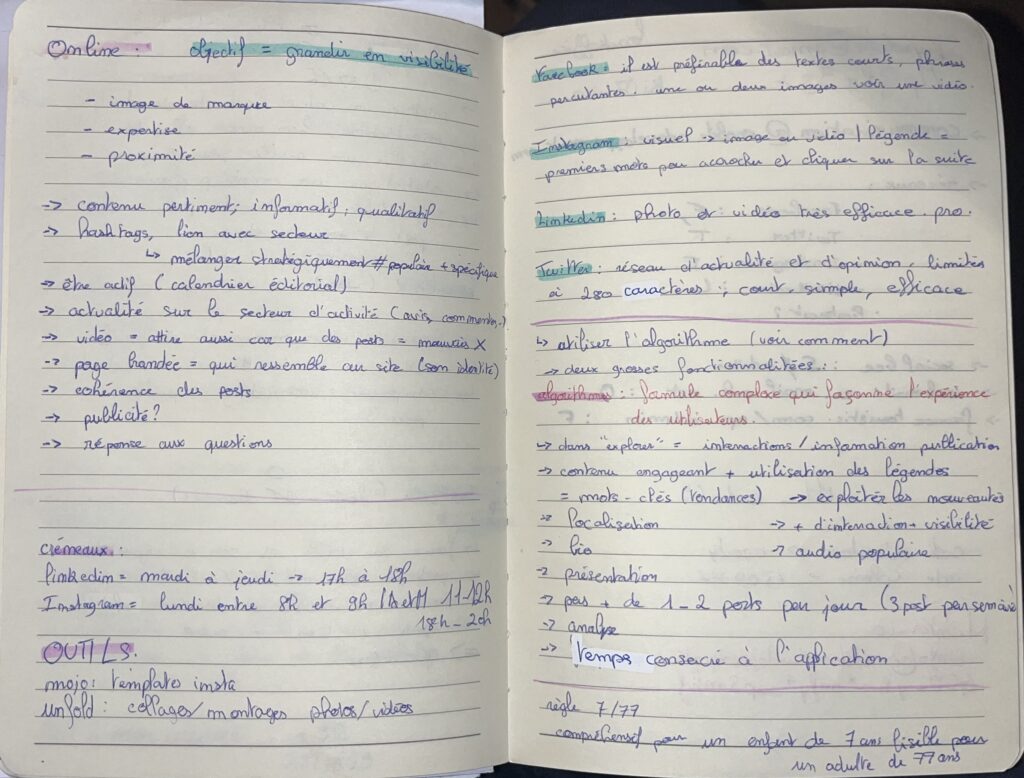 Online : objectif = grandir en visibilité
- image de marque
- expertise
- proximité
-> contenu pertinent; informatif; qualitatif
-> hashtags, lien avec secteur
↳ mélanger stratégiquement # populair + spécifique
-> être actif (calendrier éditorial)
-> actualité sur le secteur d'activité (avis, commenter..)
-> vidéo = attire aussi car que des posts = mauvais X
-> page brandée = qui ressemble au site (son identité)
-> cohérence des posts
-> publicité?
-> réponse aux questions
crémeaux :
linkedin = mardi à jeudi -> 17h à 18h
Instagram = lundi entre 8h et 9h 11-12h
18h - 20h
OUTILS.
mojo: templates insta
unfold : collages/montages photos/vidéos
Facebook : il est préférable des textes courts, phrases
percutantes. une ou deux images voir une vidéo.
Instagram : visuel -> image ou vidéo / légende =
premiers mots pour acrocher et cliquer sur la suite
Linkedin : photo et vidéo très efficace. pro.
Twitter : réseau d'actualité et d'opinion, limités
à 280 caractères ; court, simple, efficace
↳ utiliser l'algorithme (voir comment)
-> deux grosses fonctionnalitées :
algorithmes : formule complexe qui façonne l'expérience
des utilisateurs.
↳ dans "explorer" = interactions / information publication
-> contenu engageant + utilisation des légendes
= mots-clés (tendances) -> exploiter les nouveautés
-> localisation -> + d'interaction + visibilité
-> bio -> audio populaire
-> présentation
-> pas + de 1-2 posts par jour (3 post par semaine)
-> analyse
-> temps consacré à l'application
règle 7/77
compréhensif pour un enfant de 7 ans lisible pour
un adulte de 77 ans